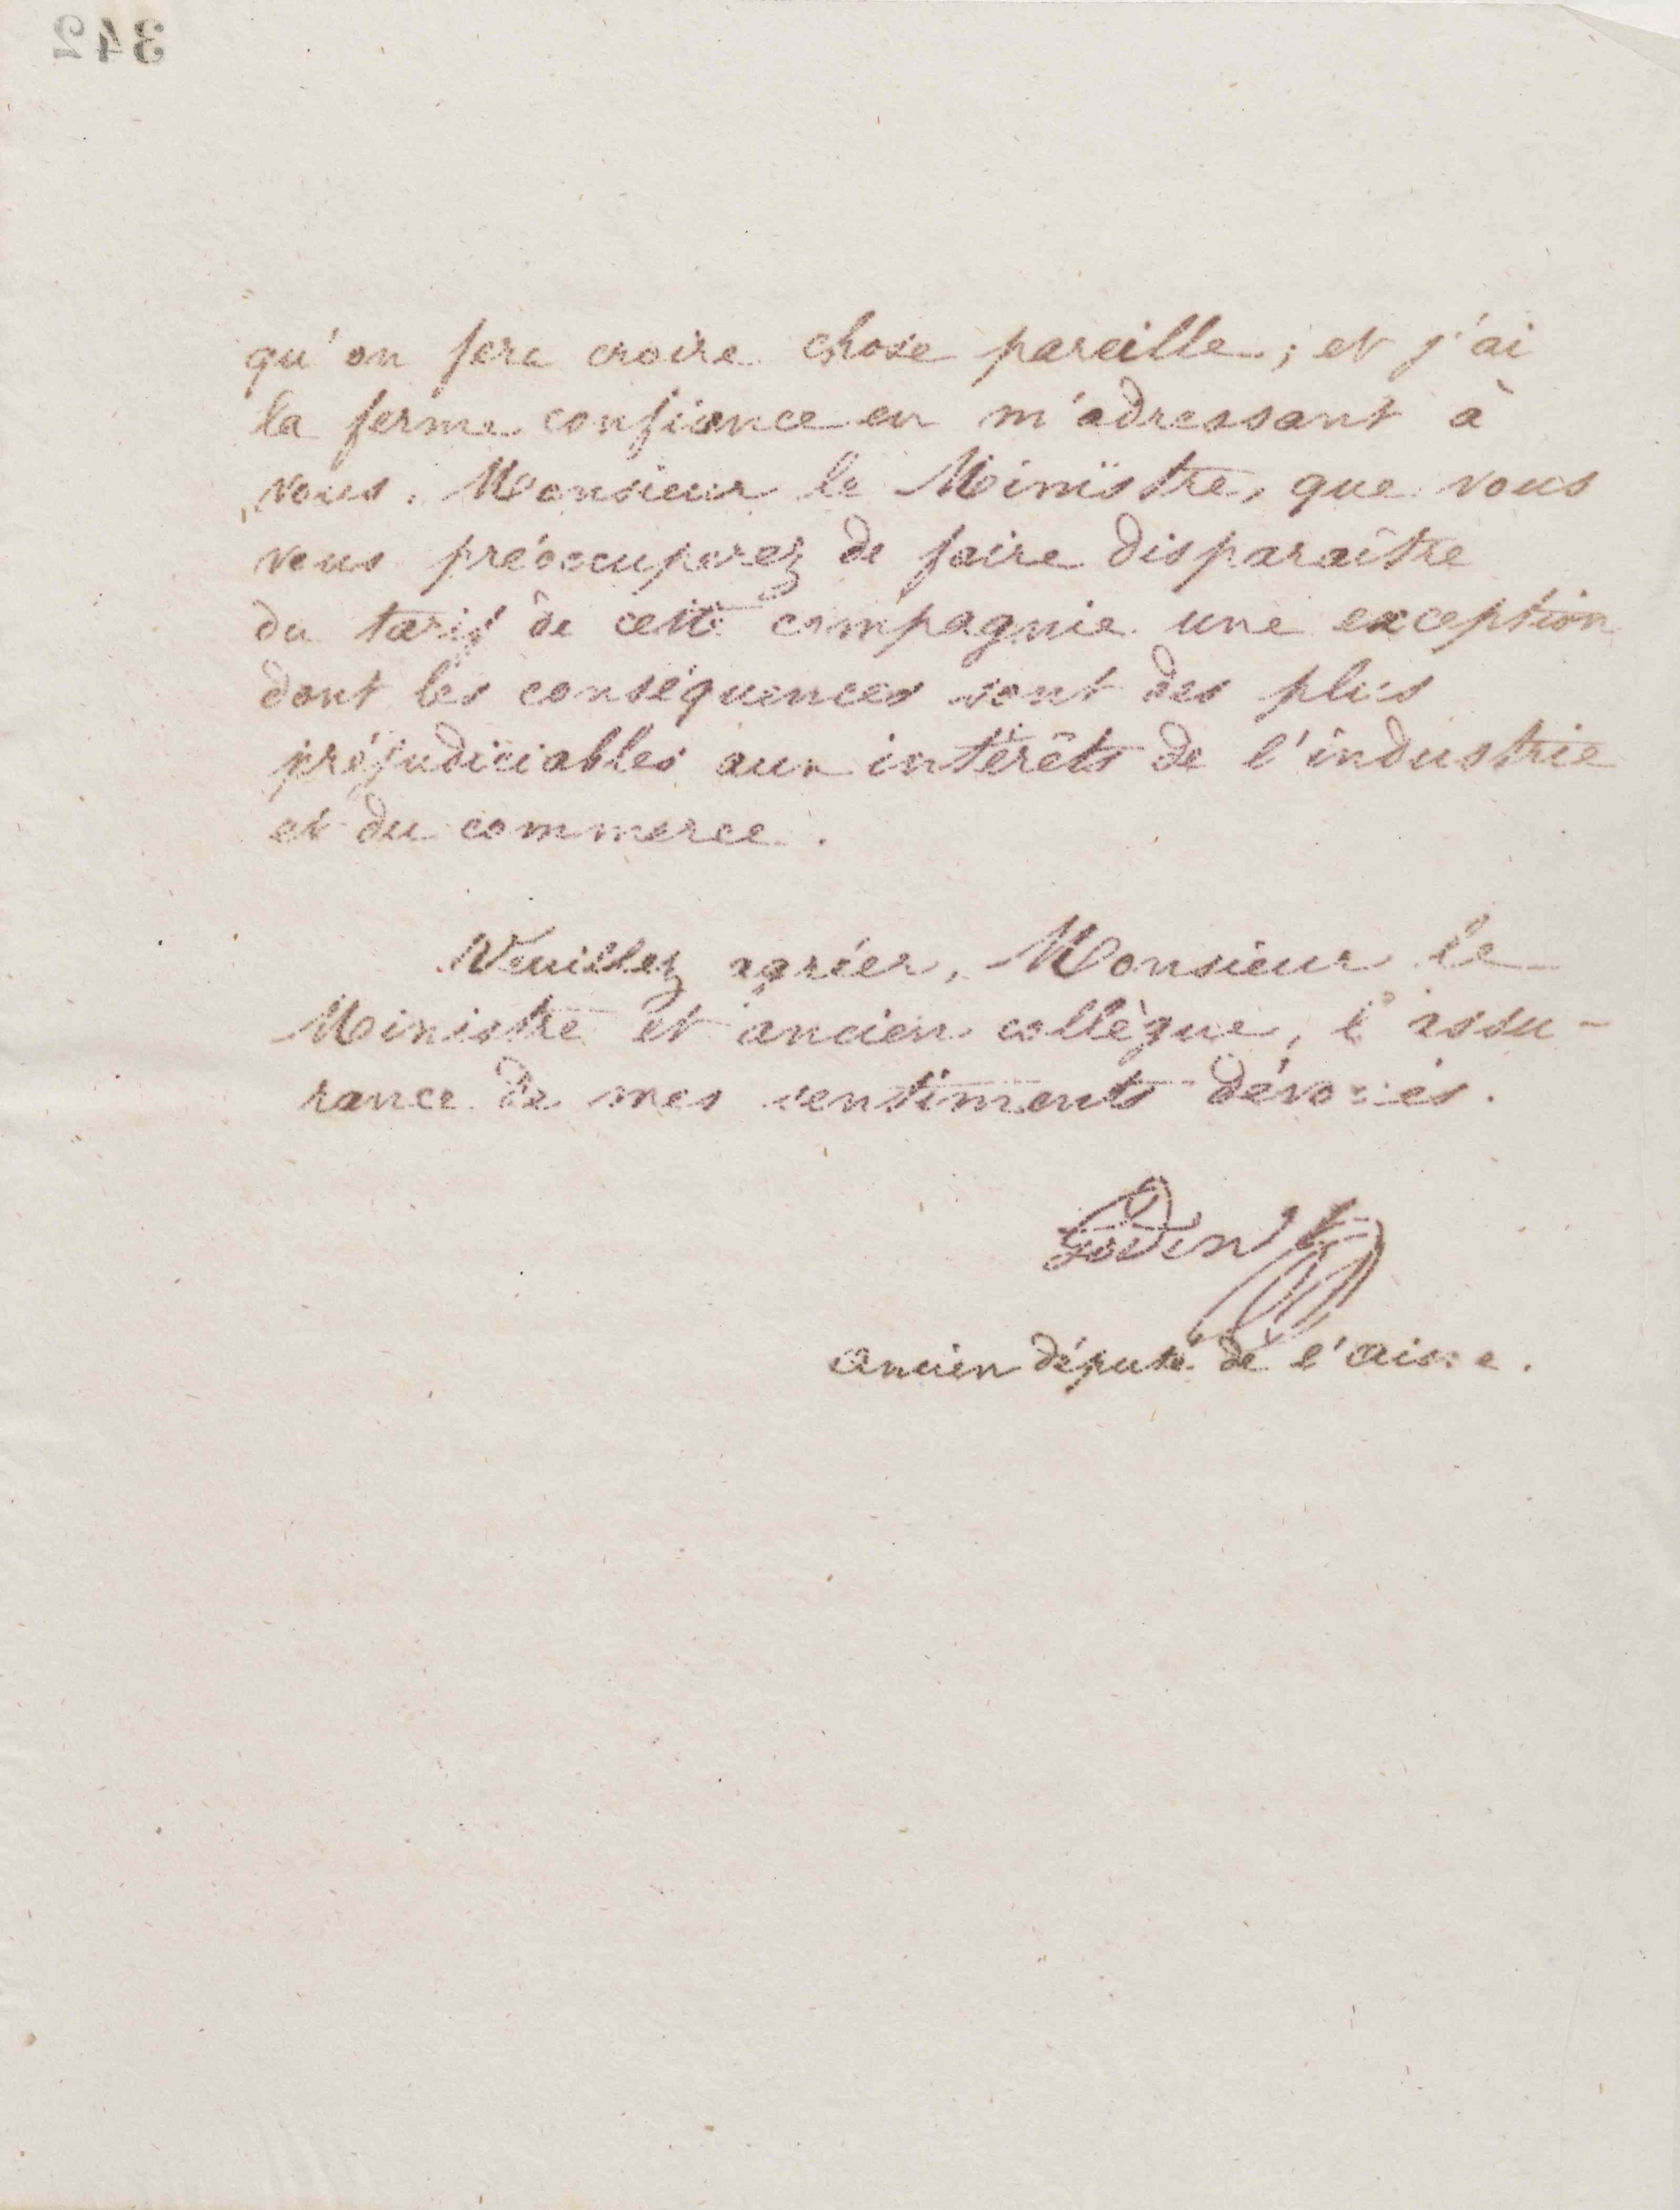 342
qu'on fera croire chose pareille ; et j'ai
la ferme confiance en m'adressant à
vous, Monsieur le Ministre, que vous
vous préoccuperez de faire disparaître
du tarif de cette compagnie une exception
dont les conséquences sont des plus
préjudiciables aux intérêts de l'industrie
et du commerce.
Veuillez agréer, Monsieur le
Ministre et ancien collègue, l'assu-
rance de mes sentiments dévoués.
Godin
ancien député de l'aisne.